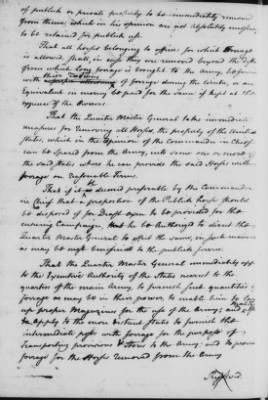 of publick or private property to be immediately removed
from thence, which in his opinion are not absolutely necessary
to be retained for publick use.
That all horses belonging to officers for which forage
is allowed, shall, in case they are removed beyond the
from which long forage is brought to the Army, be furnished
with of forage during the Winter, or an
Equivalent in money be paid for the same if kept at the
expence of the Owners
That the Quarter Master General take immediate
measures for removing all Horses, the property of the United
States, which in the opinion of the Commander in Chief
can be spared from the Army, into some one or more of
the said States where he can provide the said Horses with
forage on reasonable Terms.
That if it be deemed preferable by the Commander
in Chief that a proportion of the Publick horses should
be disposed of for Draft oxen to be provided for the
ensuing Campaign, that he be authorized to direct the
Quarter Master General to effect the same, in such manner
as may be most beneficial to the publick service.
That the Quarter Master General immediately apply
to the Executive Authority of the States nearest to the
quarters of the main Army, to furnish such quantities of
forage as may be in their power, to enable him to lay
up proper Magazines for the use of the Army; and
to apply to the more distant States to furnish the
intermediate posts with forage for the purpose of
Transporting provisions & stores to the Army, and to provide
forage for the Horses removed from the Army
Resolved